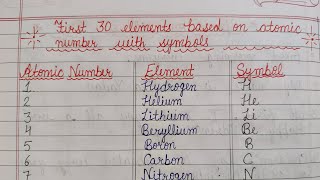 First 30 elements based on atomic
number with symbols
Atomic Number Element Symbol
1 Hydrogen H
2 Helium He
3 Lithium Li
4 Beryllium Be
5 Boron B
6 Carbon C
7 Nitrogen N